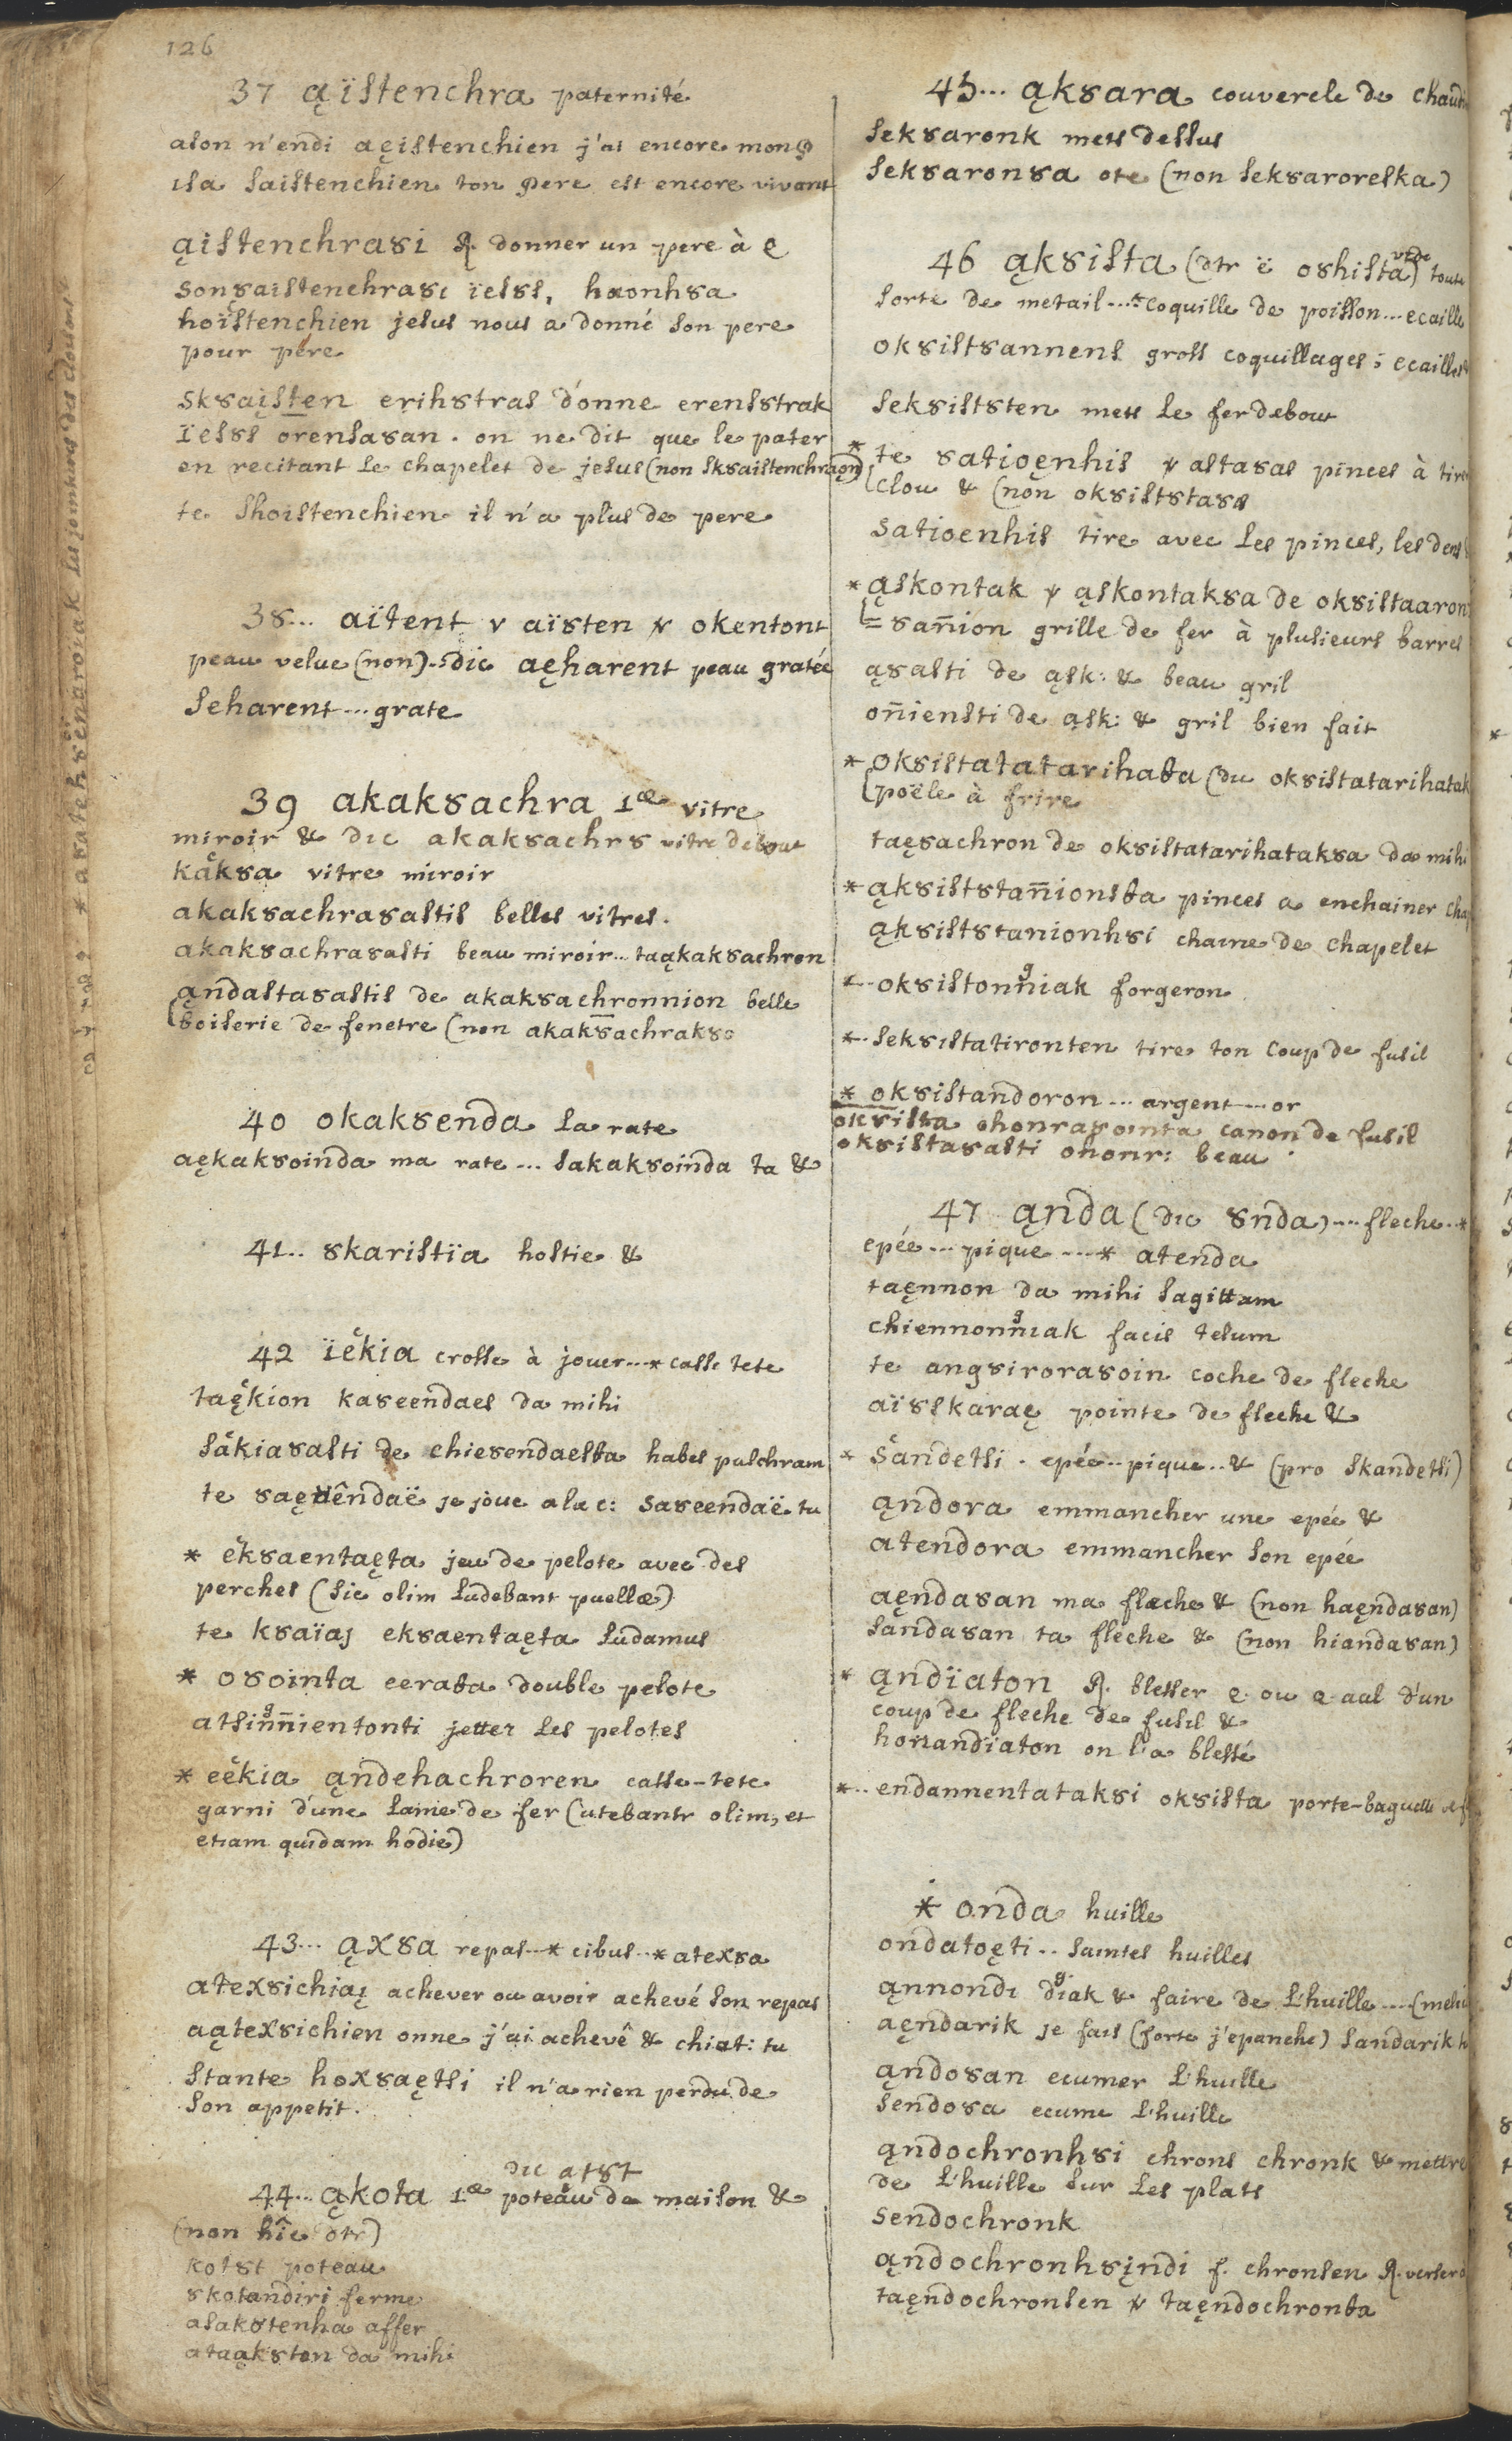 126
37 ąïstenchra paternité
ason n'endi aęistenchien j'ai encore mon p
isa saistenchien ton pere est encore vivant
ąistenchra8i R. donner un pere à
son8aistenchra8i ïes8s, haonh8a
hoïstenchien jesus nous a donné son pere
pour pere
sk8aįsten erih8tras donne erens8trak
ïes8s orensa8an. on ne dit que le pater
en recitant le chapelet de jesus (non sk8aistenchra
te shoistenchien il n'a plus de pere
38... aïtent v aï8ten v okentont
peau velue (non)... dic aęharent peau gratée
seharent... grate
39 akak8achra 1æ vitre
miroir & dic akak8achr8 vitre debout
kak8a vitre miroir
akak8achra8astis belles vitres.
akak8achra8asti beau miroir.. taąkak8achron
ąndasta8astis de akak8achronnion belle
boiserie de fenetre (non akak8achrak8
40 okak8enda la rate
aękak8oinda ma rate... sakak8oinda ta &
41.. 8karistïa hostie &
42 ïekia crosse à jouer...* casse tete
taękion ka8eendaes da mihi
sakia8asti de chie8endaesta habes pulchram
te 8aę8êndaë je joue a la c: sa8eendaë tu
* ek8aentaęta jeu de pelote avec des
perches (sic olim ludebant puellæ)
te k8aïaj ek8aentaęta ludamus
* o8ointa eerata double pelote
atsinnientonti jetter les pelotes
* eekia ąndehachroren casse-tete
garni d'une lame de fer (utebantr olim, et
etiam quidam hodie)
43... ąx8a repas..* cibus..* atex8a
atex8ichiaį achever ou avoir achevé son repas
aątex8ichien onne j'ai achevê & chiat: tu
stante hox8aętsi il n'a rien perdu de
son appetit.
dic at8t
44... ąkota 1æ poteau de maison &
(non hîc dtr)
kot8t poteau
skotandiri ferme
asak8tenha affer
ataąk8ton da mihi
45... ąk8ara couvercle de
sek8aronk mets dessus
sek8aron8a ote (non sek8aroreska)
46 ąk8ista (dtr ë o8hista) toute
sorte de metail... coquille de poisson... ecaille
ok8ist8annens gross coquillages; ecailles
sek8ist8ten mets le fer debout
* te 8atioęnhis v asta8as pinces à tirer
clou & (non ok8ist8tas8
satioenhis tire avec les pinces, les dents
* ąskontak v ąskontak8a de ok8istaaron
8annion grille de fer à plusieurs barres
ą8asti de ąsk: & beau gril
onniensti de ask: & gril bien fait
* ok8istatatarihata (du ok8istatarihatak
poële à frire
taę8achron de ok8istatarihatak8a da mihi
* ąk8ist8tannionsta pinces a enchainer
ąk8ist8tanionh8i chaine de chapelet
*.. ok8istonniak forgeron
*.. sek8istatironten tire ton coup de fusil
* ok8istandoron... argent... or
ok8ista ohonra8ointa canon de fusil
ok8ista8asti ohonr: beau
47 ąnda (dic 8nda)... fleche..*
epée... pique....* atenda
taęnnon da mihi sagittam
chiennonniak facis telum
te ang8irora8oin coche de fleche
aï8skaraę pointe de fleche &
* sandetsi. epée.. pique.. & (pro skandetsi)
ąndora emmancher une epée &
atendora emmancher son epée
aęnda8an ma fleche & (non haęnda8an)
sanda8an ta fleche & (non hianda8an)
* ąndïaton R. blesser q. ou q aal d'un
coup de fleche de fusil &
honandïaton on l'a blessé
*.. endannentatak8i ok8ista porte-baguette
* onda huille
ondatoęti.. saintes huilles
ąnnondi diak & faire de l'huille...
aęndarik je fais (forte j'epanche) sandarik
ąndo8an ecumer l'huille
sendo8a ecume l'huille
ąndochronh8i chrons chronk & mettre
de l'huille sur les plats
sendochronk
ąndochronh8įndi f. chronsen R. verser
taęndochronsen v taęndochronta